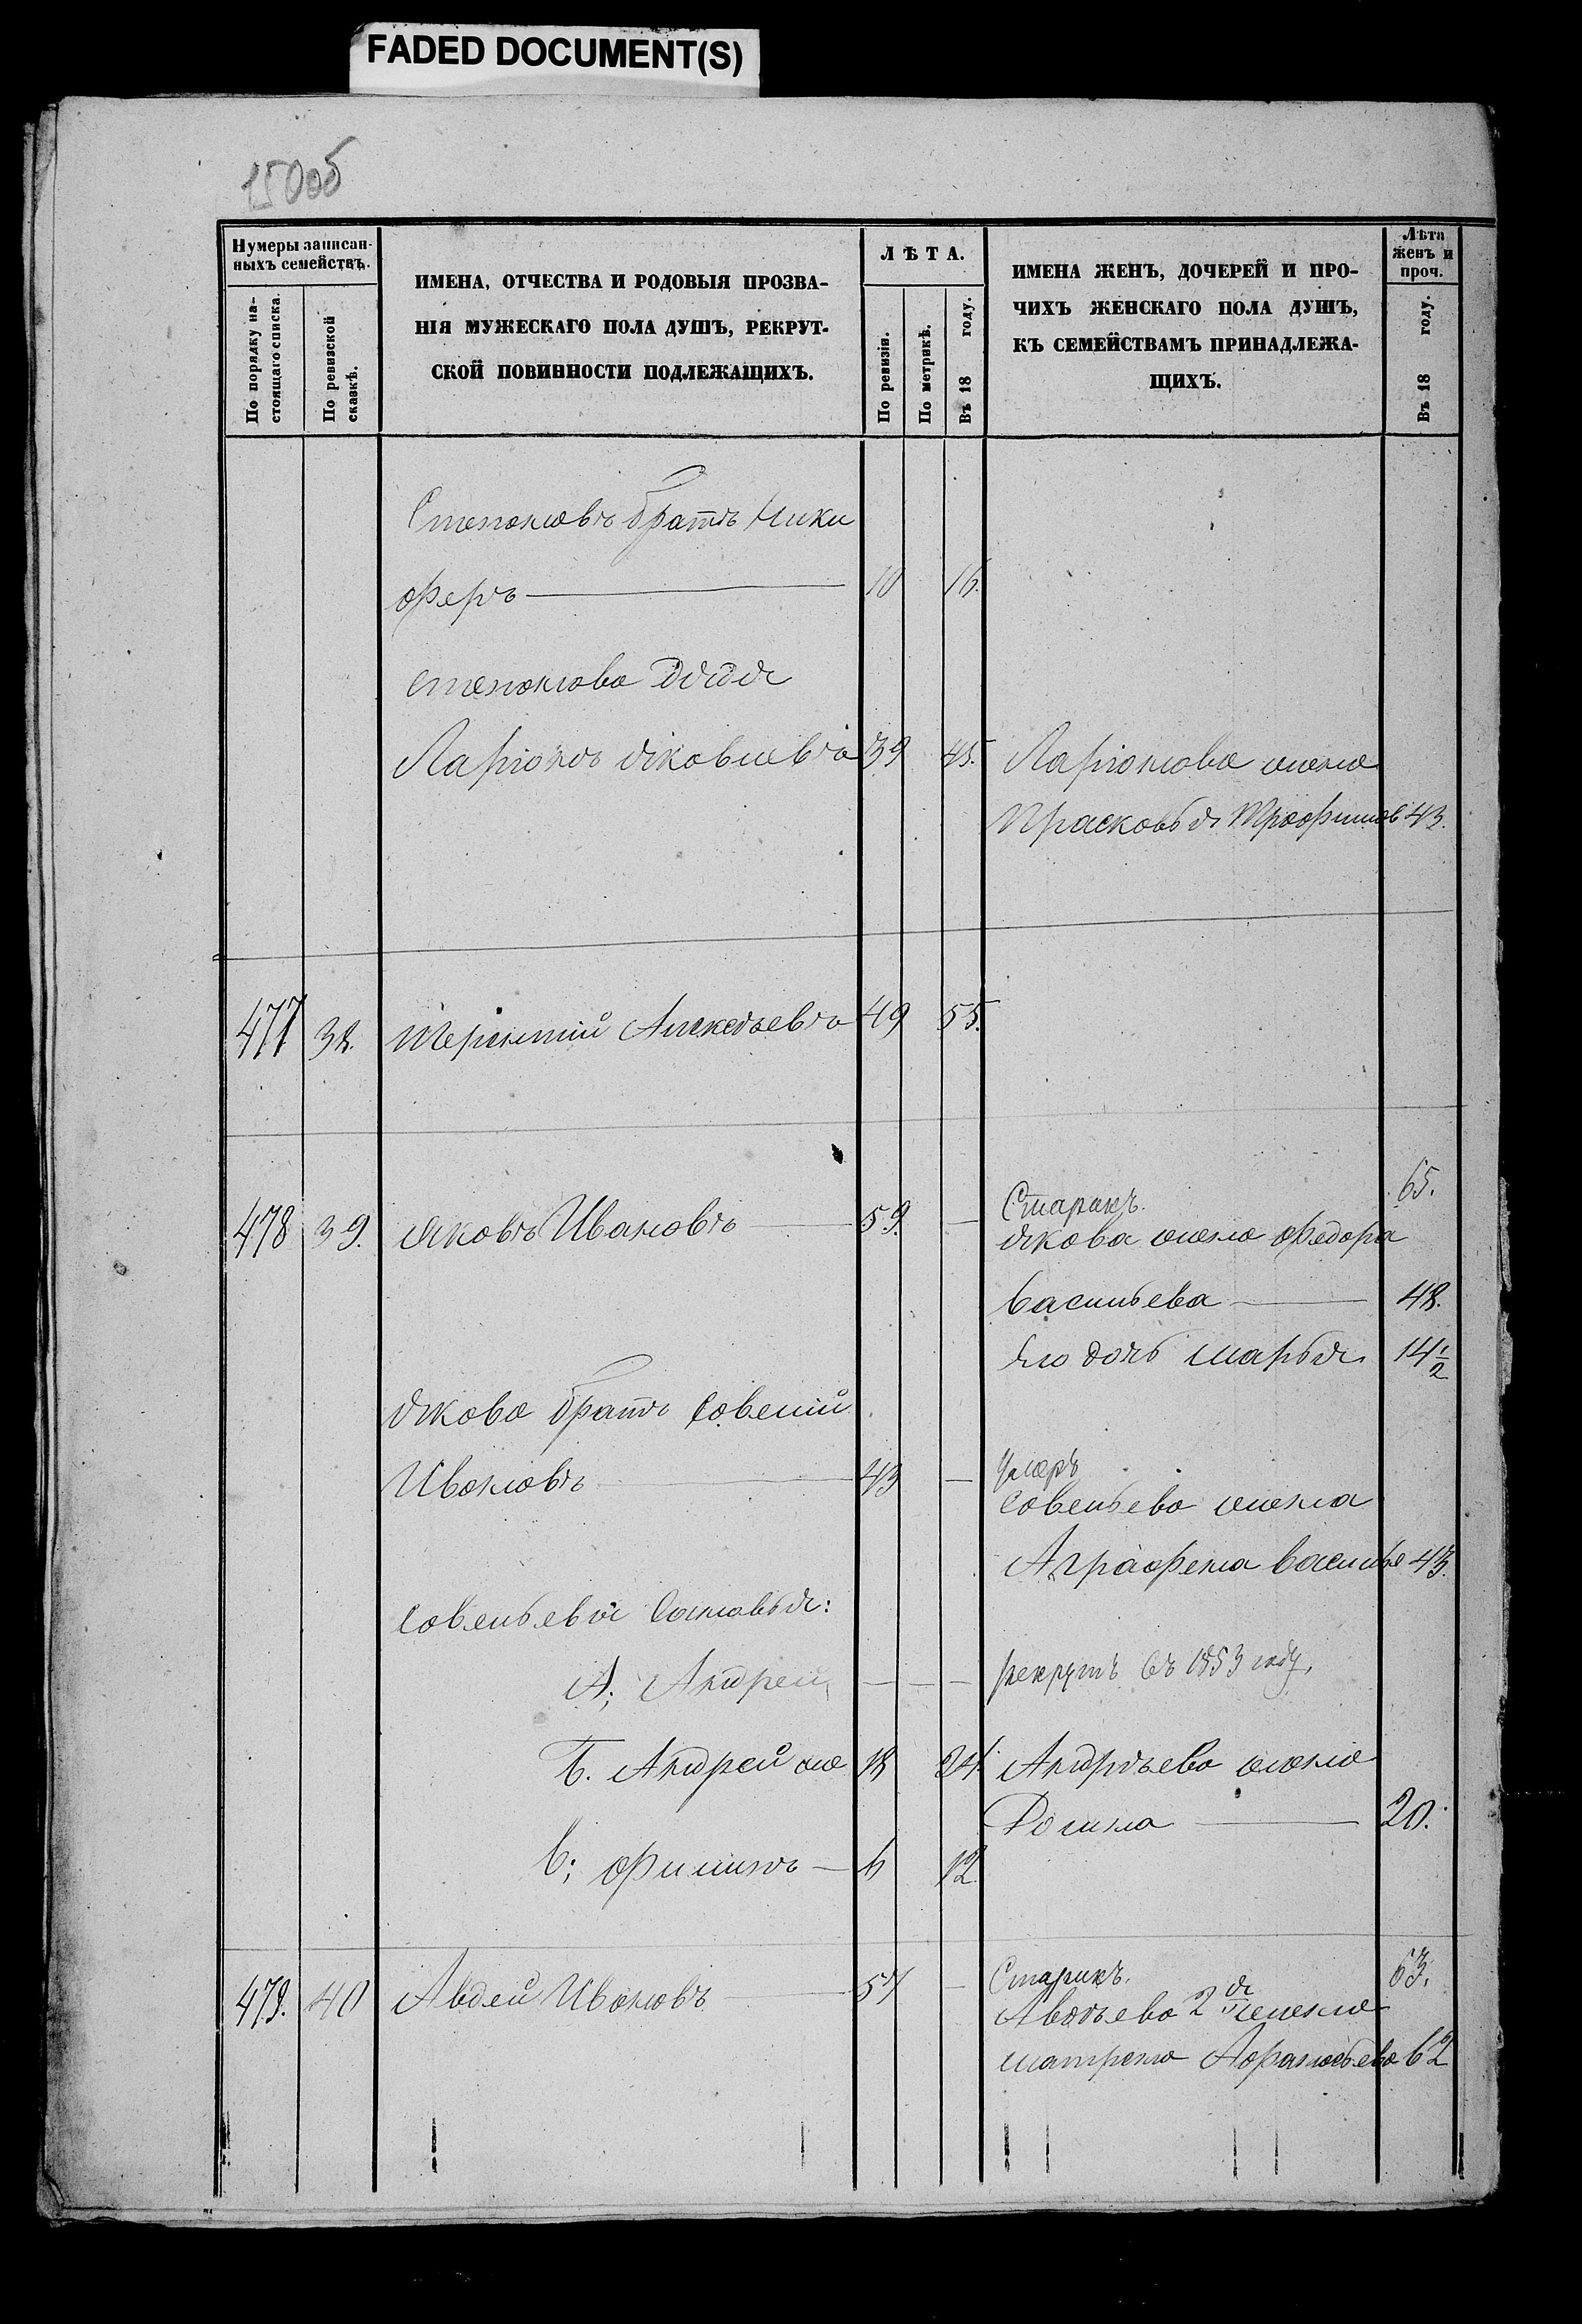 FADED DOCUMENT(S)
150об
Нумеры записан-
ныхъ семействъ.
По порядку на-
стоящаго списка.
По ревизской
сказкѣ.
ИМЕНА, ОТЧЕСТВА И РОДОВЫЯ ПРОЗВА-
НІЯ МУЖЕСКАГО ПОЛА ДУШЪ, РЕКРУТ-
СКОЙ ПОВИННОСТИ ПОДЛЕЖАЩИХЪ.
ЛѢТА.
По ревизіи.
По метрикѣ.
Въ 18 году.
ИМЕНА ЖЕНЪ, ДОЧЕРЕЙ И ПРО-
ЧИХЪ ЖЕНСКАГО ПОЛА ДУШЪ,
КЪ СЕМЕЙСТВАМЪ ПРИНАДЛЕЖА-
ЩИХЪ.
Лѣта
женъ и
проч.
Въ 18 году.
Степановъ братъ Ники
феръ 10 16.
степанова дядя
Ларіонъ яковлевъ 39 45. Ларіонова жена
Прасковья Трофимов 43.
477 38. Терентий Алексѣевъ 49 55.
478 39. яковъ Ивановъ 59. — Старикъ. 65.
якова жена Федора
Васильева 48.
Его дочь марья 14 1/2
якова братъ Савелий
Ивановъ 43 — умеръ
Савельева жена
Аграфена василье 43.
Савельевы Сыновья:
А; Андрей — — — рекрутъ въ 1853 году.
Б. Андрей же 18 24. Андрѣева жена
Домна 20.
В; Филипъ 6 12.
479. 40 Авдей Ивановъ 57 — Старикъ. 63.
Авдѣева 2я жена
матрена Афанасьева 62